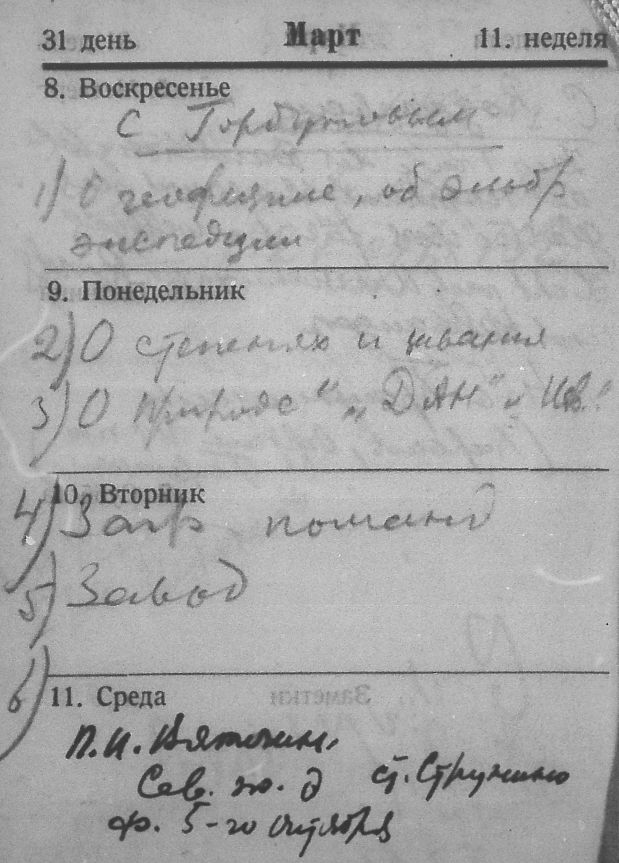 31 день Март 11. неделя
8. Воскресенье
С Горбуновым
1) О геофизике, об Эльбр
экспедиции
9. Понедельник
2) О степенях и звания
3) О природе " „ДАН" и Изв."
10. Вторник
4) Загр команд
5) Завод
6)
11. Среда
П.И. Вяткин.
Сев. ж. д ст. Струнино
ф. 5-го октября
Заметки